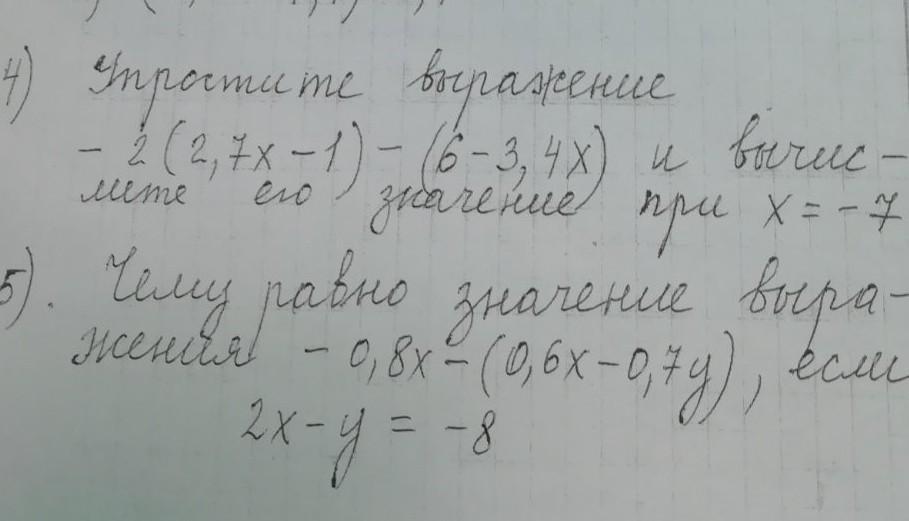 4) Упростите выражение
- 2 (2,7x - 1) - (6 - 3,4x) и вычис -
лите его значение при x = - 7
5). Чему равно значение выра -
жения - 0,8x - (0,6x - 0,7y), если
2x - y = -8